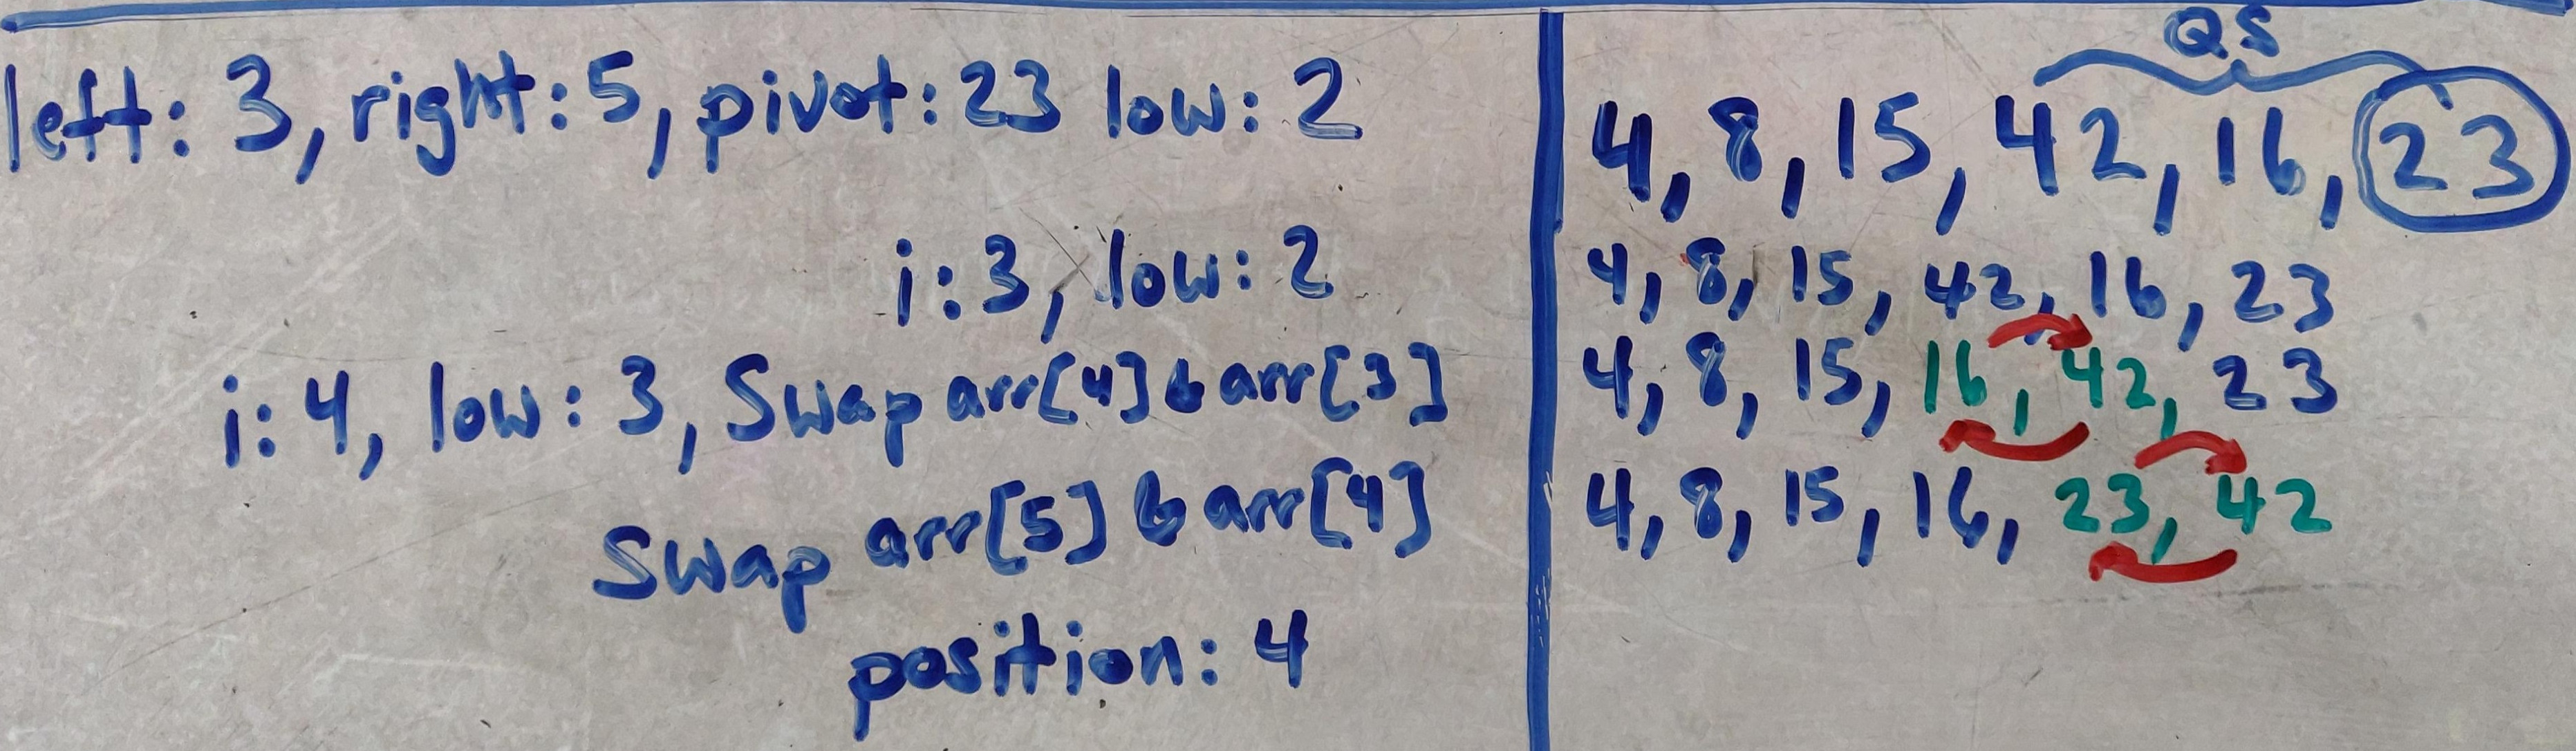 left: 3, right: 5, pivot: 23 low: 2
i: 3, low: 2
i: 4, low: 3, Swap arr[4] & arr[3]
Swap arr[5] & arr[4]
position: 4
QS
4, 8, 15, 42, 16, 23
4, 8, 15, 42, 16, 23
4, 8, 15, 16, 42, 23
4, 8, 15, 16, 23, 42